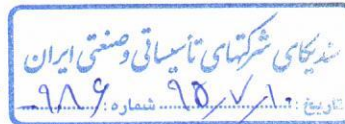 سندیکای شرکتهای تأسیساتی و صنعتی ایران
تاریخ: ۹۵/۷/۱۰ شماره: ۹۸۶